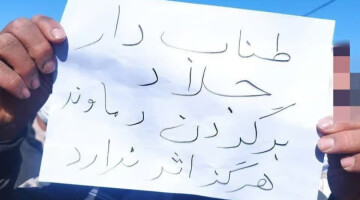 طناب دار
جلاد
برگردن دماوند
هرگز اثر ندارد